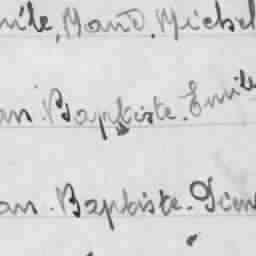 mile, Mard. Michel
an Baptiste. Emile
an. Baptiste. Dieu